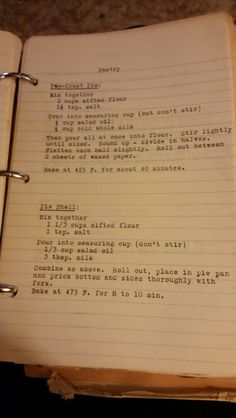 Pastry
Two-Crust Pie:
Mix together
2 cups sifted flour
1½ tsp. salt
Pour into measuring cup (but don't stir)
½ cup salad oil
¼ cup cold whole milk
Then pour all at once into flour. Stir lightly
until mixed. Round up - divide in halves.
Flatten each half slightly. Roll out between
2 sheets of waxed paper.
Bake at 425 F. for about 40 minutes.
Pie Shell:
Mix together
1 1/3 cups sifted flour
1 tsp. salt
Pour into measuring cup (don't stir)
1/3 cup salad oil
3 tbsp. milk
Combine as above. Roll out, place in pie pan
and prick bottom and sides thoroughly with
fork.
Bake at 475 F. for 8 to 10 min.